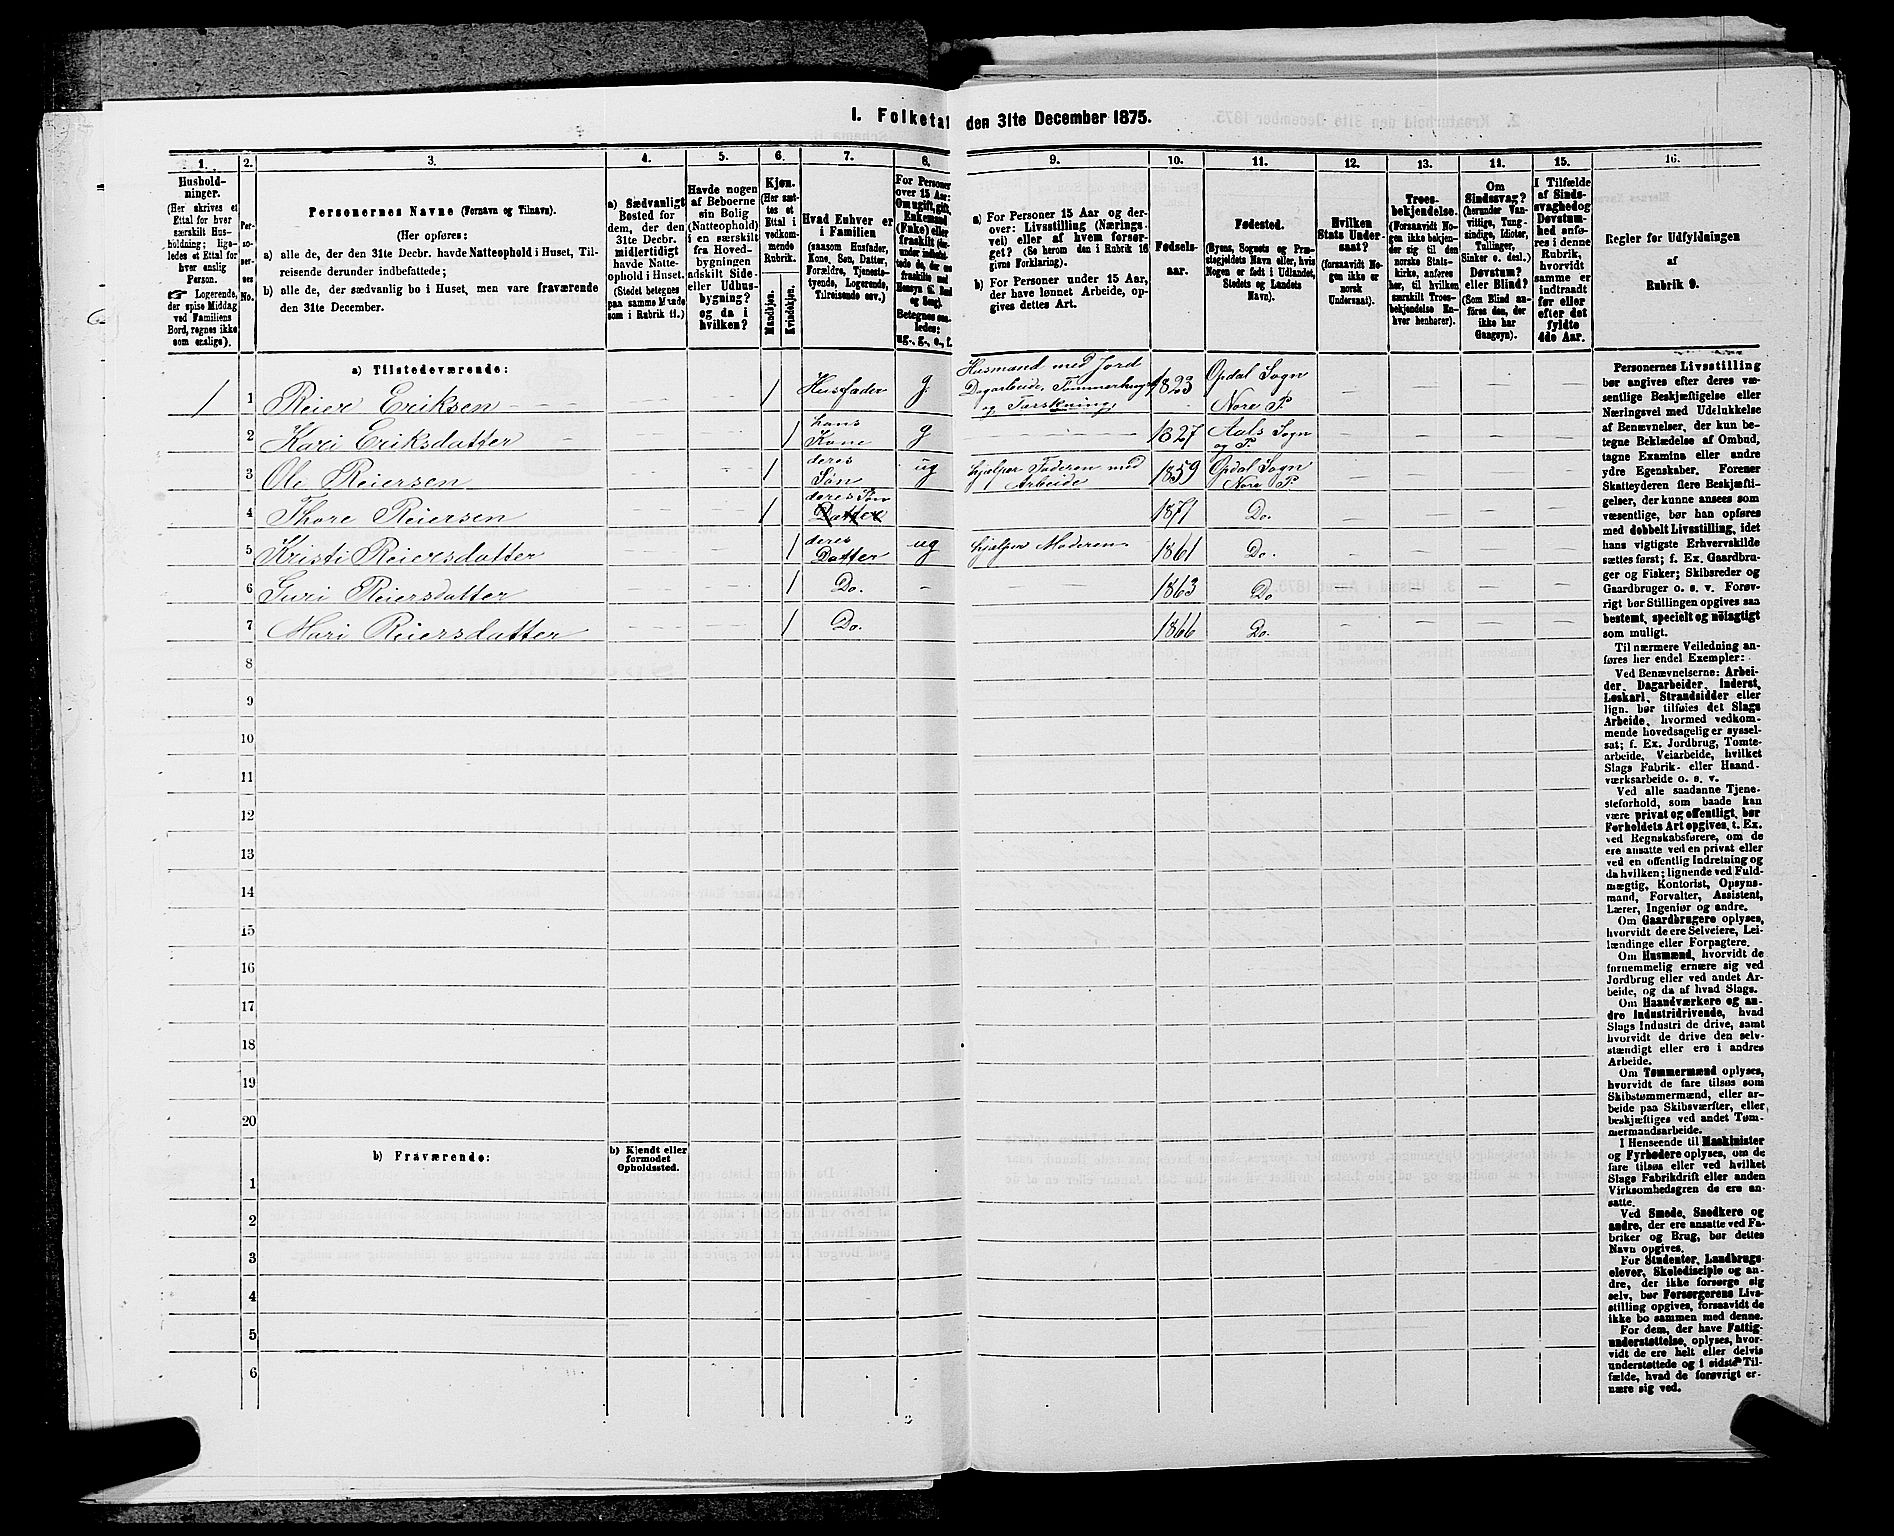 1. Folketal den 31te December 1875.
1. 2. 3. 4. 5. 6. 7. 8. 9. 10. 11. 12. 13. 14. 15. 16.
Hushold-
ninger.
(Her skrives et
Ettal for hver
særskilt Hus-
holdning; lige-
ledes et Ettal for
hver enslig
Person.
☞ Logerende,
der spise Middag
ved Familiens
Bord, regnes ikke
som enslige).
Per-
so-
ner-
nes
No.
Personernes Navne (Fornavn og Tilnavn).
(Her opføres:
a) alle de, der den 31te Decbr. havde Natteophold i Huset, Til-
reisende derunder indbefattede;
b) alle de, der sædvanlig bo i Huset, men vare fraværende
den 31te December.
a) Sædvanligt
Bosted for
dem, der den
31te Decbr.
midlertidigt
havde Natte-
ophold i Huset.
(Stedet betegnes
paa samme Maade
som i Rubrik 11.)
Havde nogen
af Beboerne
sin Bolig
(Natteophold)
i en særskilt
fra Hoved-
bygningen
adskilt Side-
eller Udhus-
bygning?
og da i
hvilken?
Kjøn.
(Her sæt-
tes et
Ettal i
vedkom-
mende
Rubrik.
Mandkjøn.
Kvindekjøn.
Hvad Enhver er
i Familien
(saasom Husfader,
Kone, Søn, Datter,
Forældre, Tjeneste-
tyende, Logerende,
Tilreisende osv.)
For Personer
over 15 Aar:
Om ugift, gift,
Enkemand
(Enke) eller
fraskilt
Betegnes saa-
ledes:
ug., g., e., f.
a) For Personer 15 Aar og der-
over: Livsstilling (Nærings-
vei) eller af hvem forsør-
get? (Se herom den i Rubrik 16
givne Forklaring).
b) For Personer under 15 Aar,
der have lønnet Arbeide, op-
gives dettes Art.
Fødsels-
aar.
Fødested.
(Byens, Sognets og Præ-
stegjeldets Navn eller, hvis
Nogen er født i Udlandet,
Stedets og Landets
Navn).
Hvilken
Stats Under-
saat?
(forsaavidt No-
gen ikke er
norsk
Undersaat).
Troes-
bekjendelse.
(Forsaavidt No-
gen ikke bekjen-
der sig til den
norske Stats-
kirke, anføres
her, til hvilken
særskilt Troes-
bekjendelse En-
hver henhører).
Om
Sindssvag?
(herunder Van-
vittige, Tung-
sindige, Idioter,
Tullinger,
Sinker o. desl.)
Døvstum?
eller Blind?
(Som Blind an-
føres den, der
ikke har
Gangsyn).
I Tilfælde
af Sinds-
svaghed og
Døvstum-
hed anfø-
res i denne
Rubrik,
hvorvidt
samme er
indtraadt
før eller
efter det
fyldte
4de Aar.
Regler for Udfyldningen
af
Rubrik 9.
a) Tilstedeværende:
1 1 Reier Eriksen 1 Husfader g. Husmand med Jord
Dagarbeide, Tømmerhugst
og Tærskning, 1823 Opdal Sogn
Nore P.
2 Kari Eriksdatter 1 hans
Kone g 1827 Aals Sogn
og P.
3 Ole Reiersen 1 deres
Søn ug hjælper Faderen med
Arbeide 1859 Opdal Sogn
Nore P.
4 Thore Reiersen 1 deres Søn
Datter 1871 Do.
5 Kristi Reiersdatter 1 deres
Datter ug hjælper Moderen 1861 Do.
6 Guri Reiersdatter 1 Do. 1863 Do
7 Mari Reiersdatter 1 Do. 1866 Do.
8
9
10
11
12
13
14
15
16
17
18
19
20
b) Fraværende:
b) Kjendt eller
formodet
Opholdssted.
1
2
3
4
5
6
Personernes Livsstilling
bør angives efter deres væ-
sentlige Beskjæftigelse eller
Næringsvei med Udelukkelse
af Benævnelser, der kun be-
tegne Beklædelse af Ombud,
tagne Examina eller andre
ydre Egenskaber. Forener
Skatteyderen flere Beskjæfti-
gelser, der kunne ansees som
væsentlige, bør han opføres
med dobbelt Livsstilling, idet
hans vigtigste Erhvervskilde
sættes først; f. Ex. Gaardbru-
ger og Fisker; Skibsreder og
Gaardbruger o. s. v. Forøv-
rigt bør Stillingen opgives saa
bestemt, specielt og nøiagtigt
som muligt.
Til nærmere Veiledning an-
føres her endel Exempler:
Ved Benævnelserne: Arbei-
der, Dagarbeider, Inderst,
Løskarl, Strandsidder eller
lign. bør tilføies det Slags
Arbeide, hvormed vedkom-
mende hovedsagelig er syssel-
sat; f. Ex. Jordbrug, Tomte-
arbeide, Veiarbeide, hvilket
Slags Fabrik- eller Haand-
værksarbeide o. s. v.
Ved alle saadanne Tjene-
steforhold, som baade kan
være privat og offentligt, bør
Forholdets Art opgives, t. Ex.
ved Regnskabsførere, om de
ere ansatte ved en privat eller
ved en offentlig Indretning og
da hvilken; lignende ved Fuld-
mægtig, Kontorist, Opsyns-
mand, Forvalter, Assistent,
Lærer, Ingeniør og andre.
Om Gaardbrugere oplyses,
hvorvidt de ere Selveiere, Lei-
lændinge eller Forpagtere.
Om Husmænd, hvorvidt de
fornemmelig ernære sig ved
Jordbrug eller ved andet Ar-
beide, og da af hvad Slags.
Om Haandværkere og an-
dre Industridrivende, hvad
Slags Industri de drive, samt
hvorvidt de drive den selv-
stændigt eller ere i andres
Arbeide.
Om Tømmermænd oplyses,
hvorvidt de fare tilsøs som
Skibstømmermænd, eller ar-
beide paa Skibsværfter, eller
beskjæftiges ved andet Tøm-
mermandsarbeide.
I Henseende til Maskinister
og Fyrbødere oplyses, om de
fare tilsøs eller ved hvilket
Slags Fabrikdrift eller anden
Virksomhedsgren de ere an-
satte.
Ved Smede, Snedkere og
andre, der ere ansatte ved Fa-
briker og Brug, bør dettes
Navn opgives.
For Studenter, Landbrugs-
elever, Skoledisciple og an-
dre, der ikke forsørge sig
selv, bør Forsørgerens Livs-
stilling opgives, forsaavidt de
ikke bo sammen med denne.
For dem, der have Fattig-
understøttelse, oplyses, hvor-
vidt de ere helt eller delvis
understøttede og i sidste Til-
fælde, hvad de forøvrigt er-
nære sig ved.